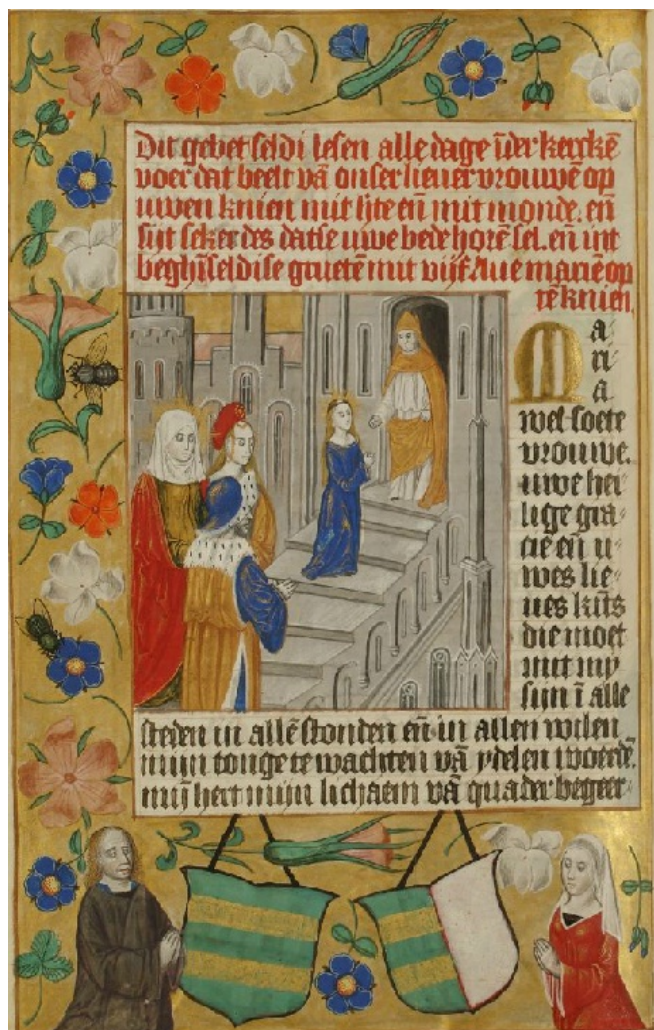 Dit gebet seldi lesen alle dage īder kerckē
voer dat beelt vā onser liever vrouwē op
uwen knien mit h̄te eñ mit monde. eñ
sijt seker des datse uwe bede horē sel. eñ int
beghīseldise gruetē mit vijf Aue mariē op
tē knien.
Ma
ri
a
wel soete
vrouwe.
uwe hei
lige gra
cie eñ u
wes lie
ues kīts
die moet
mit my
sijn ī alle
steden in allē stonden eñ in allen wilen
mijn tonge te wachten vā ydelen woerdē.
mij̄ hert mijn lichaem vā quader begeer